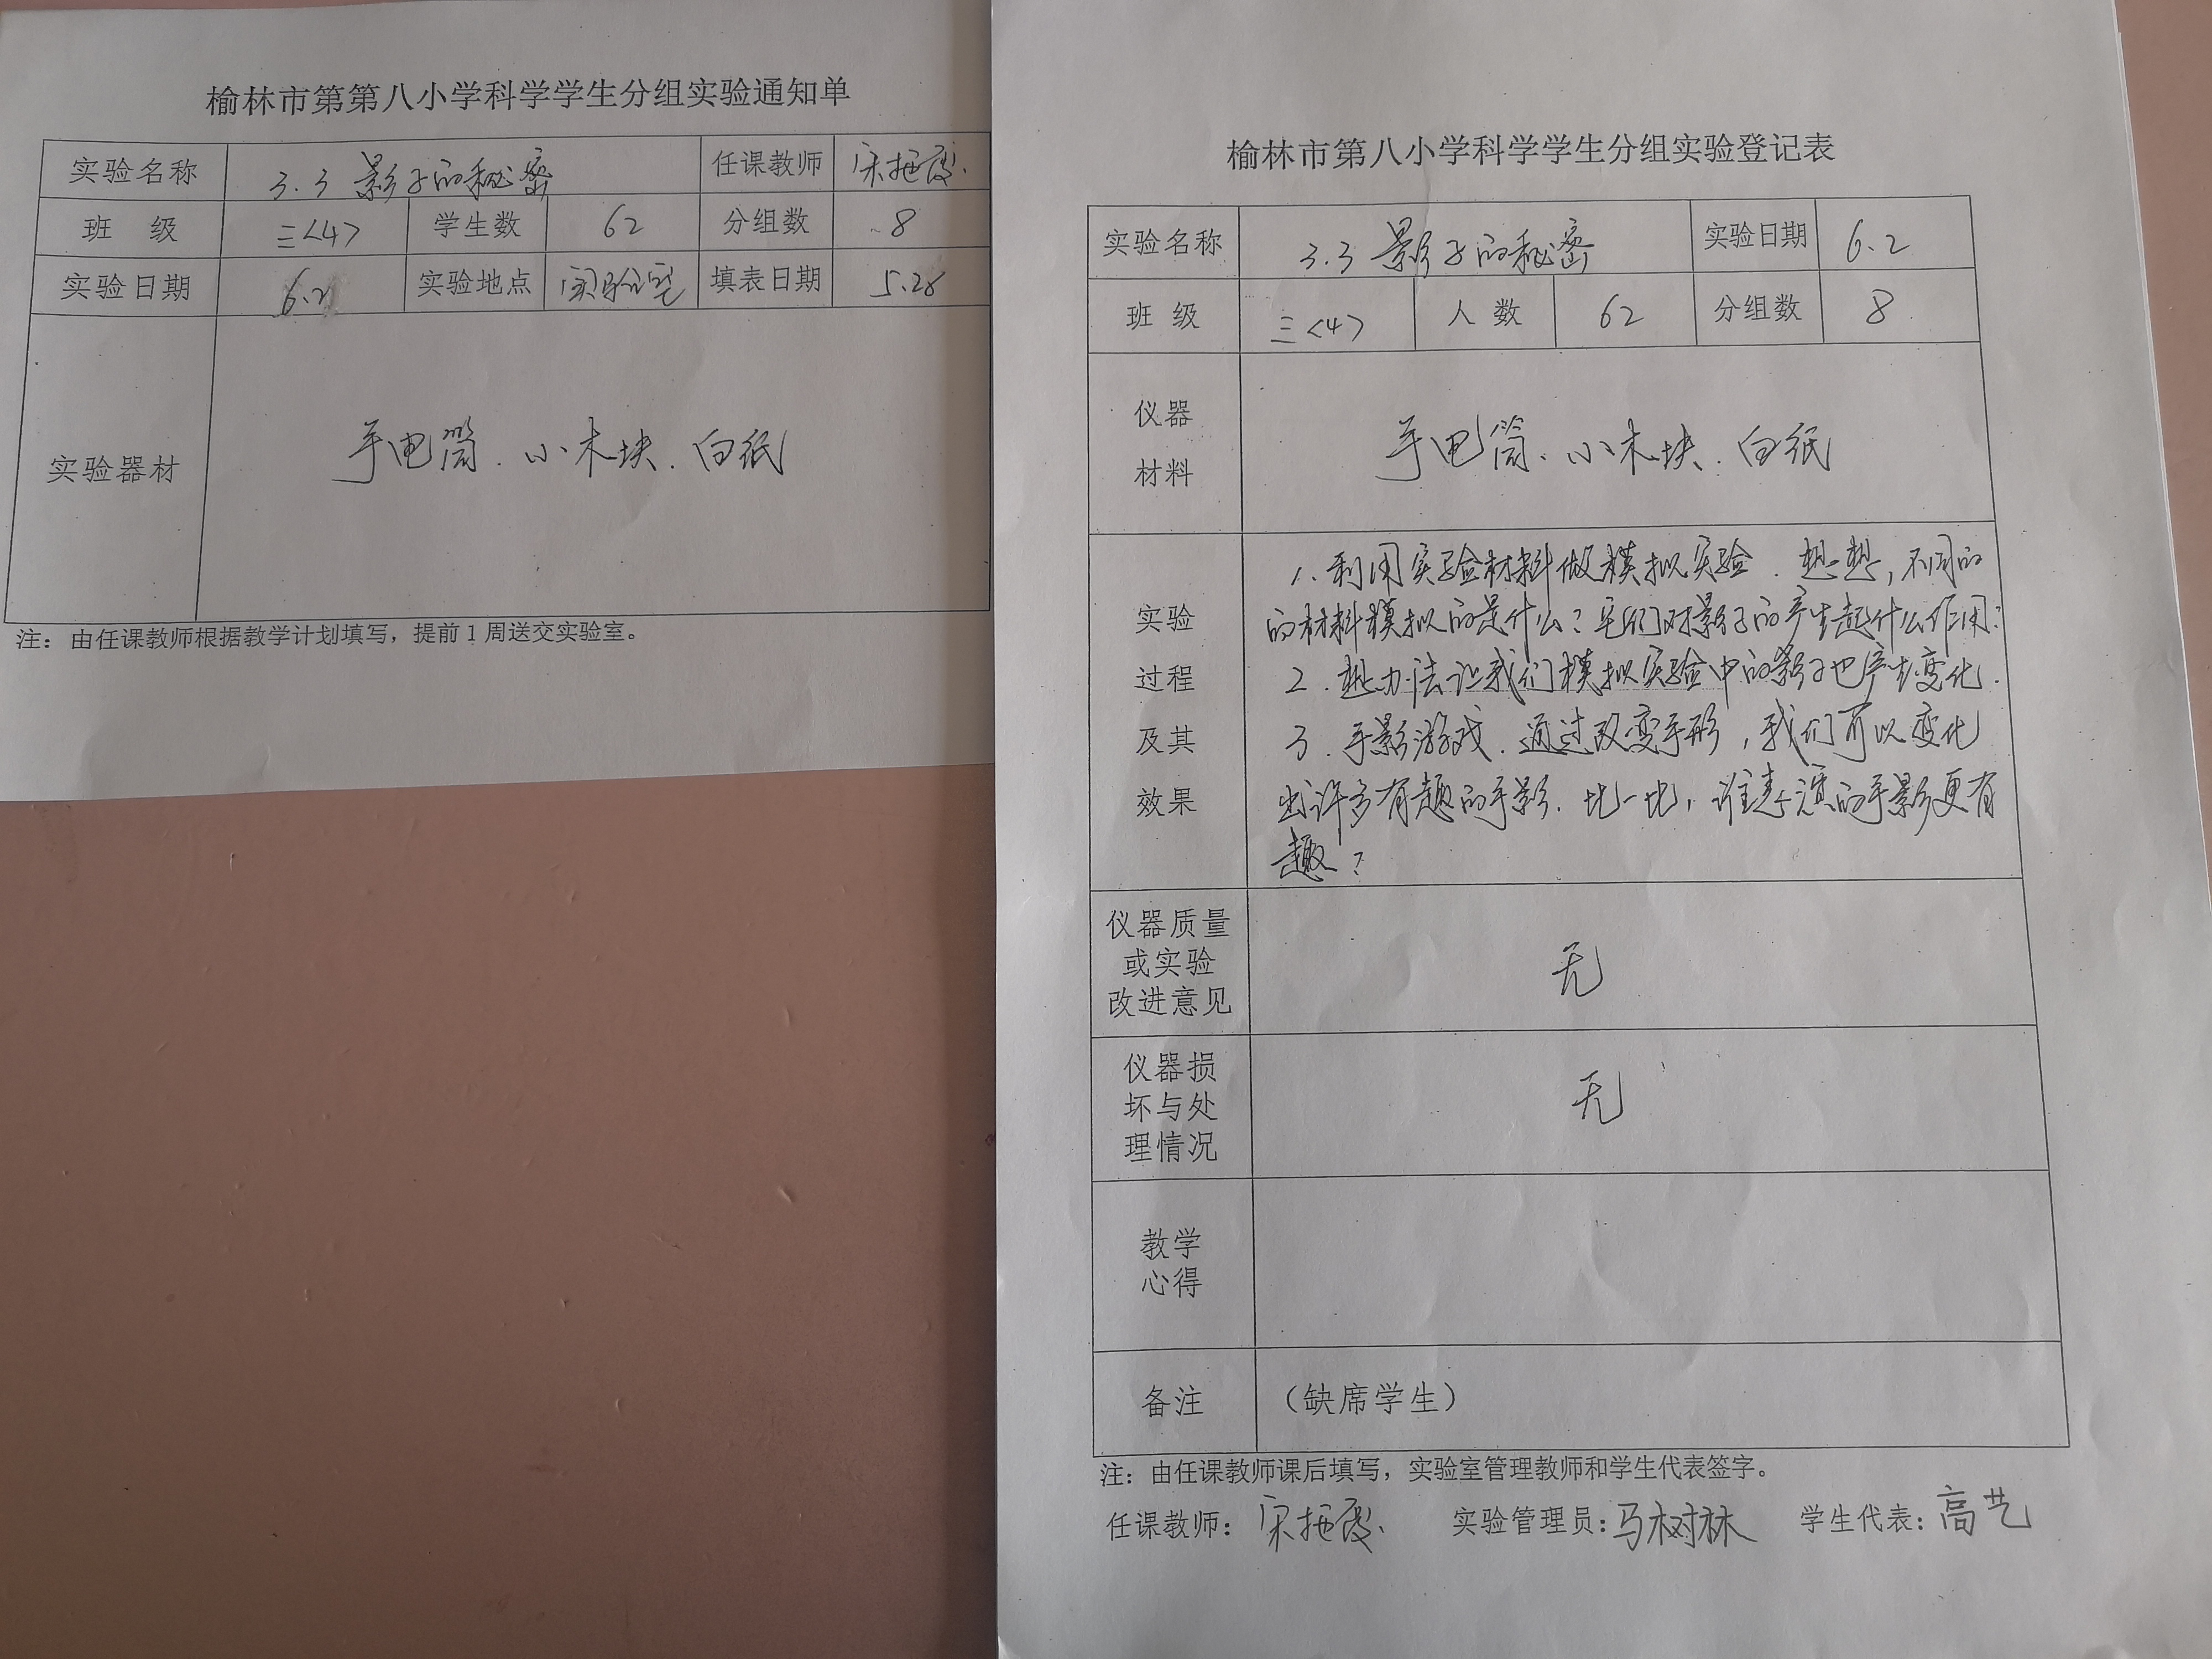 榆林市第第八小学科学学生分组实验通知单
实验名称 3.3 影子的秘密 任课教师 宋拖霞
班 级 三<4> 学生数 62 分组数 8
实验日期 6.2 实验地点 实验室 填表日期 5.28
实验器材 手电筒、小木块、白纸
注：由任课教师根据教学计划填写，提前1周送交实验室。
榆林市第八小学科学学生分组实验登记表
实验名称 3.3 影子的秘密 实验日期 6.2
班 级 三<4> 人 数 62 分组数 8
仪器
材料
手电筒、小木块、白纸
实验
过程
及其
效果
1.利用实验材料做模拟实验.想想,不同的
的材料模拟的是什么?它们对影子的产生起什么作用?
2.想办法让我们模拟实验中的影子也产生变化.
3.手影游戏.通过改变手形,我们可以变化
出许多有趣的手影.比一比,谁表演的手影更有
趣?
仪器质量
或实验
改进意见
无
仪器损
坏与处
理情况
无
教学
心得
备注 （缺席学生）
注：由任课教师课后填写，实验室管理教师和学生代表签字。
任课教师：宋拖霞 实验管理员：马树林 学生代表：高艺